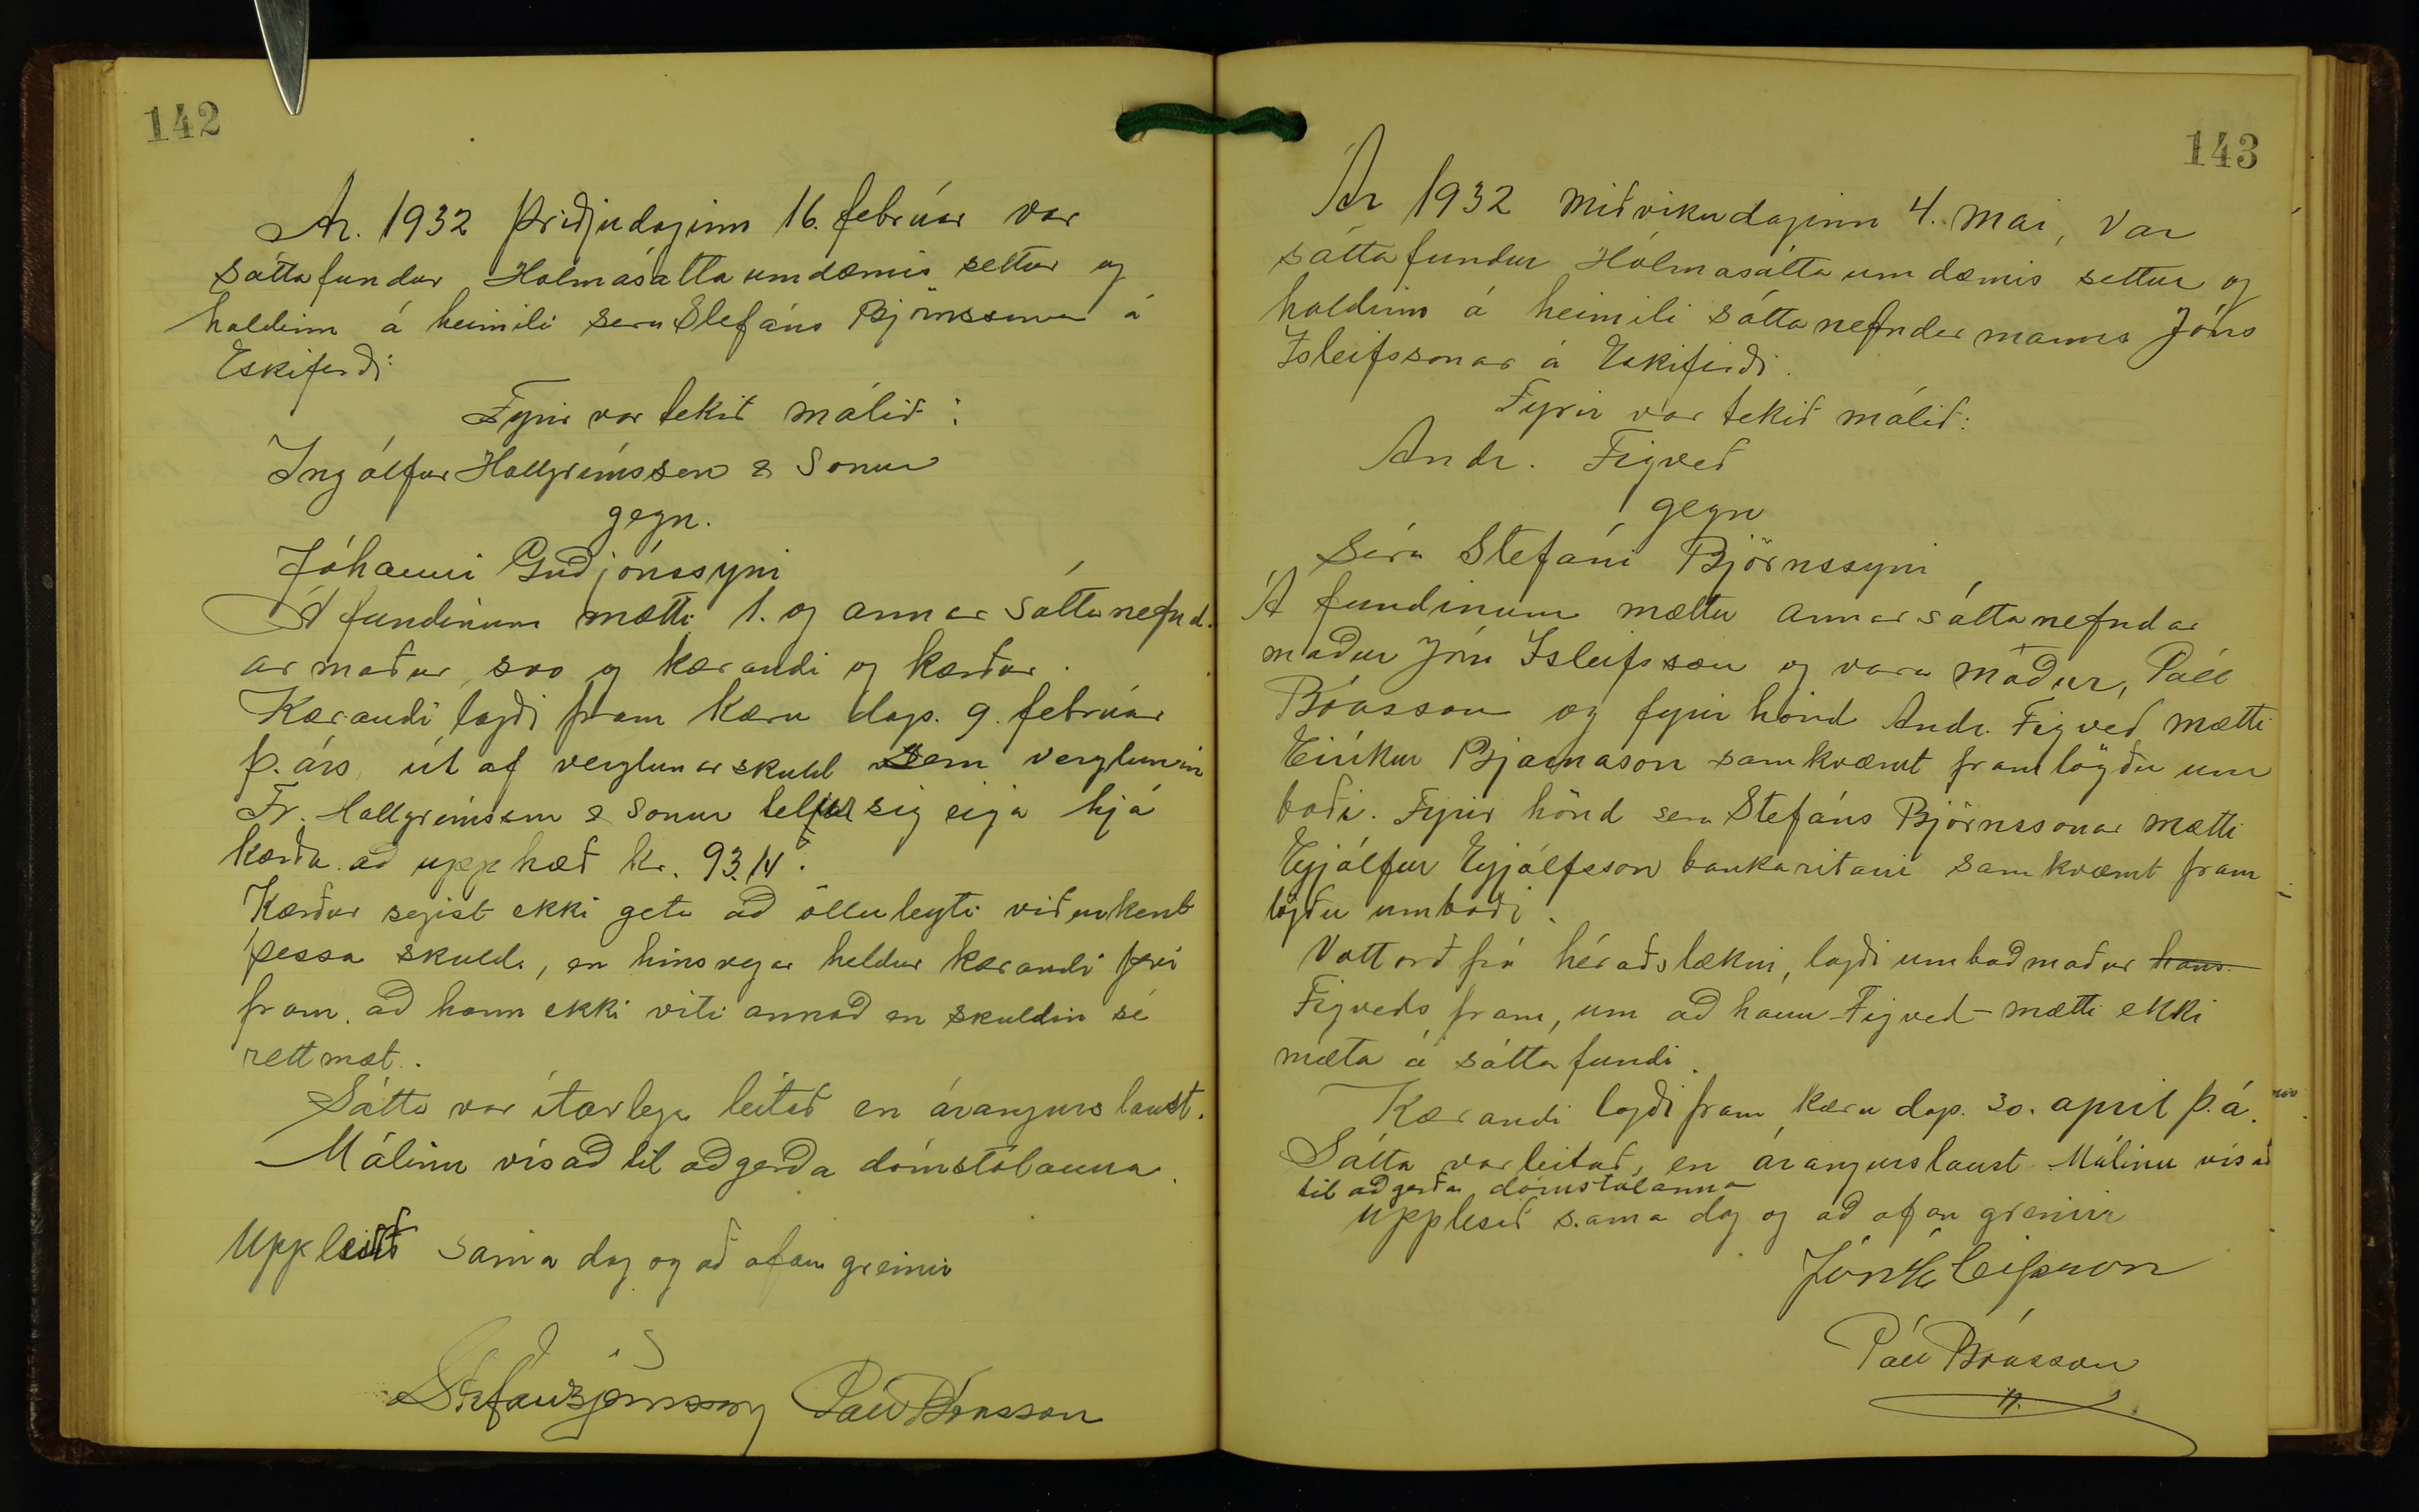 142
Ár. 1932 þriðjudaginn 16. febrúar var
sáttafundur Hólmasáttaumdæmis settur og
haldinn á heimili sera Stefáns Björnssonar á
Eskifirði:
Fyrir var tekið málið:
Ingólfur Hallgrímsson & Sonur
gegn.
Jóhanni Guðjónssyni
Á fundinum mætti 1. og annar sáttanefnd-
ar maður, svo og kærandi og kærður.
Kærandi lagði fram kæru dags. 9. febrúar
þ.árs út af verzlunarskuld sem verzlunin
Fr. Hallgrímsson & Sonur telur sig eiga hjá
kærða að upphæð kr. 93.14.
Kærður segist ekki geta að öllu leyti viðurkent
þessa skuld, en hinsvegar heldur kærandi því
fram, að hann ekki viti annað en skuldin sé
rettmæt.
Sátta var ítarlega leitað en árangurslaust.
Málinu vísað til aðgerða dómstólanna.
Upplesið sama dag og að ofan greinir
Stefán Björnsson Páll Bóasson
143
Ár 1932 miðvikudaginn 4. mai, var
sáttafundur Hólmasáttaumdæmis settur og
haldinn á heimili sáttanefndarmanns Jóns
Isleifssonar á Eskifirði.
Fyrir var tekið málið:
Andr. Figved
gegn
Séra Stefáni Björnssyni
Á fundinum mættu annar sáttanefndar
maður Jón Isleifsson og vara maður, Páll
Bóasson og fyrir hönd Andr. Figved mætti
Eiríkur Bjarnason samkvæmt framlögðu um
boði. Fyrir hönd sera Stefáns Björnssonar mætti
Eyjólfur Eyjólfsson bankaritari samkvæmt fram
lögðu umboði.
Vottorð frá héraðslækni, lagði umboðmaður hans
Figveds fram, um að hann - Figved - mætti ekki
mæta á sáttafundi.
Kærandi lagði fram kæru dags. 30. april þ.á.
Sátta var leitað, en árangurslaust. Málinu vísað
til aðgerða dómstólanna
Upplesið sama dag og að ofan greinir
Jón Ísleifsson
Páll Bóasson